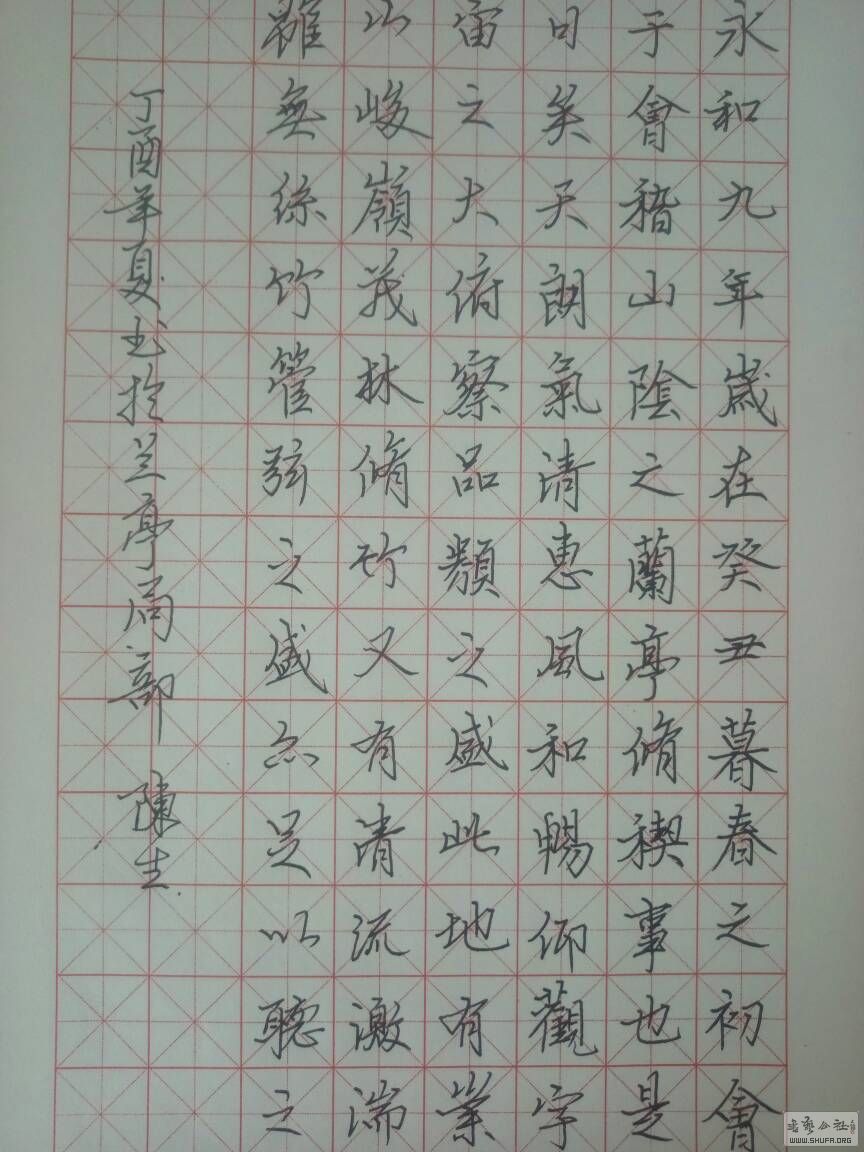 永和九年歲在癸丑暮春之初會
于會稽山陰之蘭亭脩禊事也是
日矣天朗氣清惠風和暢仰觀宇
宙之大俯察品類之盛此地有崇
山峻嶺茂林脩竹又有清流激湍
雖無絲竹管弦之盛亦足以聽之
丁酉年夏书於兰亭局部 陳生
书艺公社
WWW.SHUFA.ORG